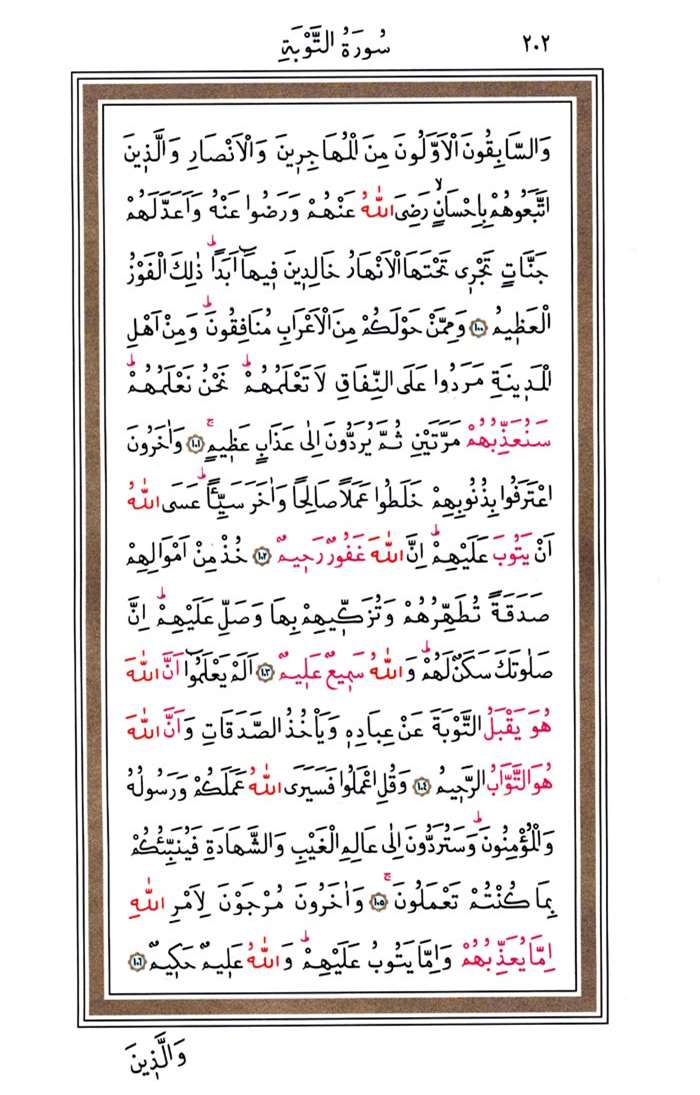 ٢٠٢
سُورَةُ التَّوْبَةِ
وَالسَّابِقُونَ الْاَوَّلُونَ مِنَ الْمُهَاجِرٖينَ وَالْاَنْصَارِ وَالَّذٖينَ
اتَّبَعُوهُمْ بِاِحْسَانٍۙ رَضِىَ اللّٰهُ عَنْهُمْ وَرَضُوا عَنْهُ وَاَعَدَّ لَهُمْ
جَنَّاتٍ تَجْرٖى تَحْتَهَا الْاَنْهَارُ خَالِدٖينَ فٖيهَٓا اَبَدًاؕ ذٰلِكَ الْفَوْزُ
الْعَظٖيمُ ﴿١٠٠﴾ وَمِمَّنْ حَوْلَكُمْ مِنَ الْاَعْرَابِ مُنَافِقُونَؕ وَمِنْ اَهْلِ
الْمَدٖينَةِ مَرَدُوا عَلَى النِّفَاقِ لَا تَعْلَمُهُمْؕ نَحْنُ نَعْلَمُهُمْؕ
سَنُعَذِّبُهُمْ مَرَّتَيْنِ ثُمَّ يُرَدُّونَ اِلٰى عَذَابٍ عَظٖيمٍۚ ﴿١٠١﴾ وَاٰخَرُونَ
اعْتَرَفُوا بِذُنُوبِهِمْ خَلَطُوا عَمَلًا صَالِحًا وَاٰخَرَ سَيِّئًاؕ عَسَى اللّٰهُ
اَنْ يَتُوبَ عَلَيْهِمْؕ اِنَّ اللّٰهَ غَفُورٌ رَحٖيمٌ ﴿١٠٢﴾ خُذْ مِنْ اَمْوَالِهِمْ
صَدَقَةً تُطَهِّرُهُمْ وَتُزَكّٖيهِمْ بِهَا وَصَلِّ عَلَيْهِمْؕ اِنَّ
صَلٰوتَكَ سَكَنٌ لَهُمْؕ وَاللّٰهُ سَمٖيعٌ عَلٖيمٌ ﴿١٠٣﴾ اَلَمْ يَعْلَمُٓوا اَنَّ اللّٰهَ
هُوَ يَقْبَلُ التَّوْبَةَ عَنْ عِبَادِهٖ وَيَاْخُذُ الصَّدَقَاتِ وَاَنَّ اللّٰهَ
هُوَ التَّوَّابُ الرَّحٖيمُ ﴿١٠٤﴾ وَقُلِ اعْمَلُوا فَسَيَرَى اللّٰهُ عَمَلَكُمْ وَرَسُولُهُ
وَالْمُؤْمِنُونَؕ وَسَتُرَدُّونَ اِلٰى عَالِمِ الْغَيْبِ وَالشَّهَادَةِ فَيُنَبِّئُكُمْ
بِمَا كُنْتُمْ تَعْمَلُونَۚ ﴿١٠٥﴾ وَاٰخَرُونَ مُرْجَوْنَ لِاَمْرِ اللّٰهِ
اِمَّا يُعَذِّبُهُمْ وَاِمَّا يَتُوبُ عَلَيْهِمْؕ وَاللّٰهُ عَلٖيمٌ حَكٖيمٌ ﴿١٠٦﴾
وَالَّذٖينَ